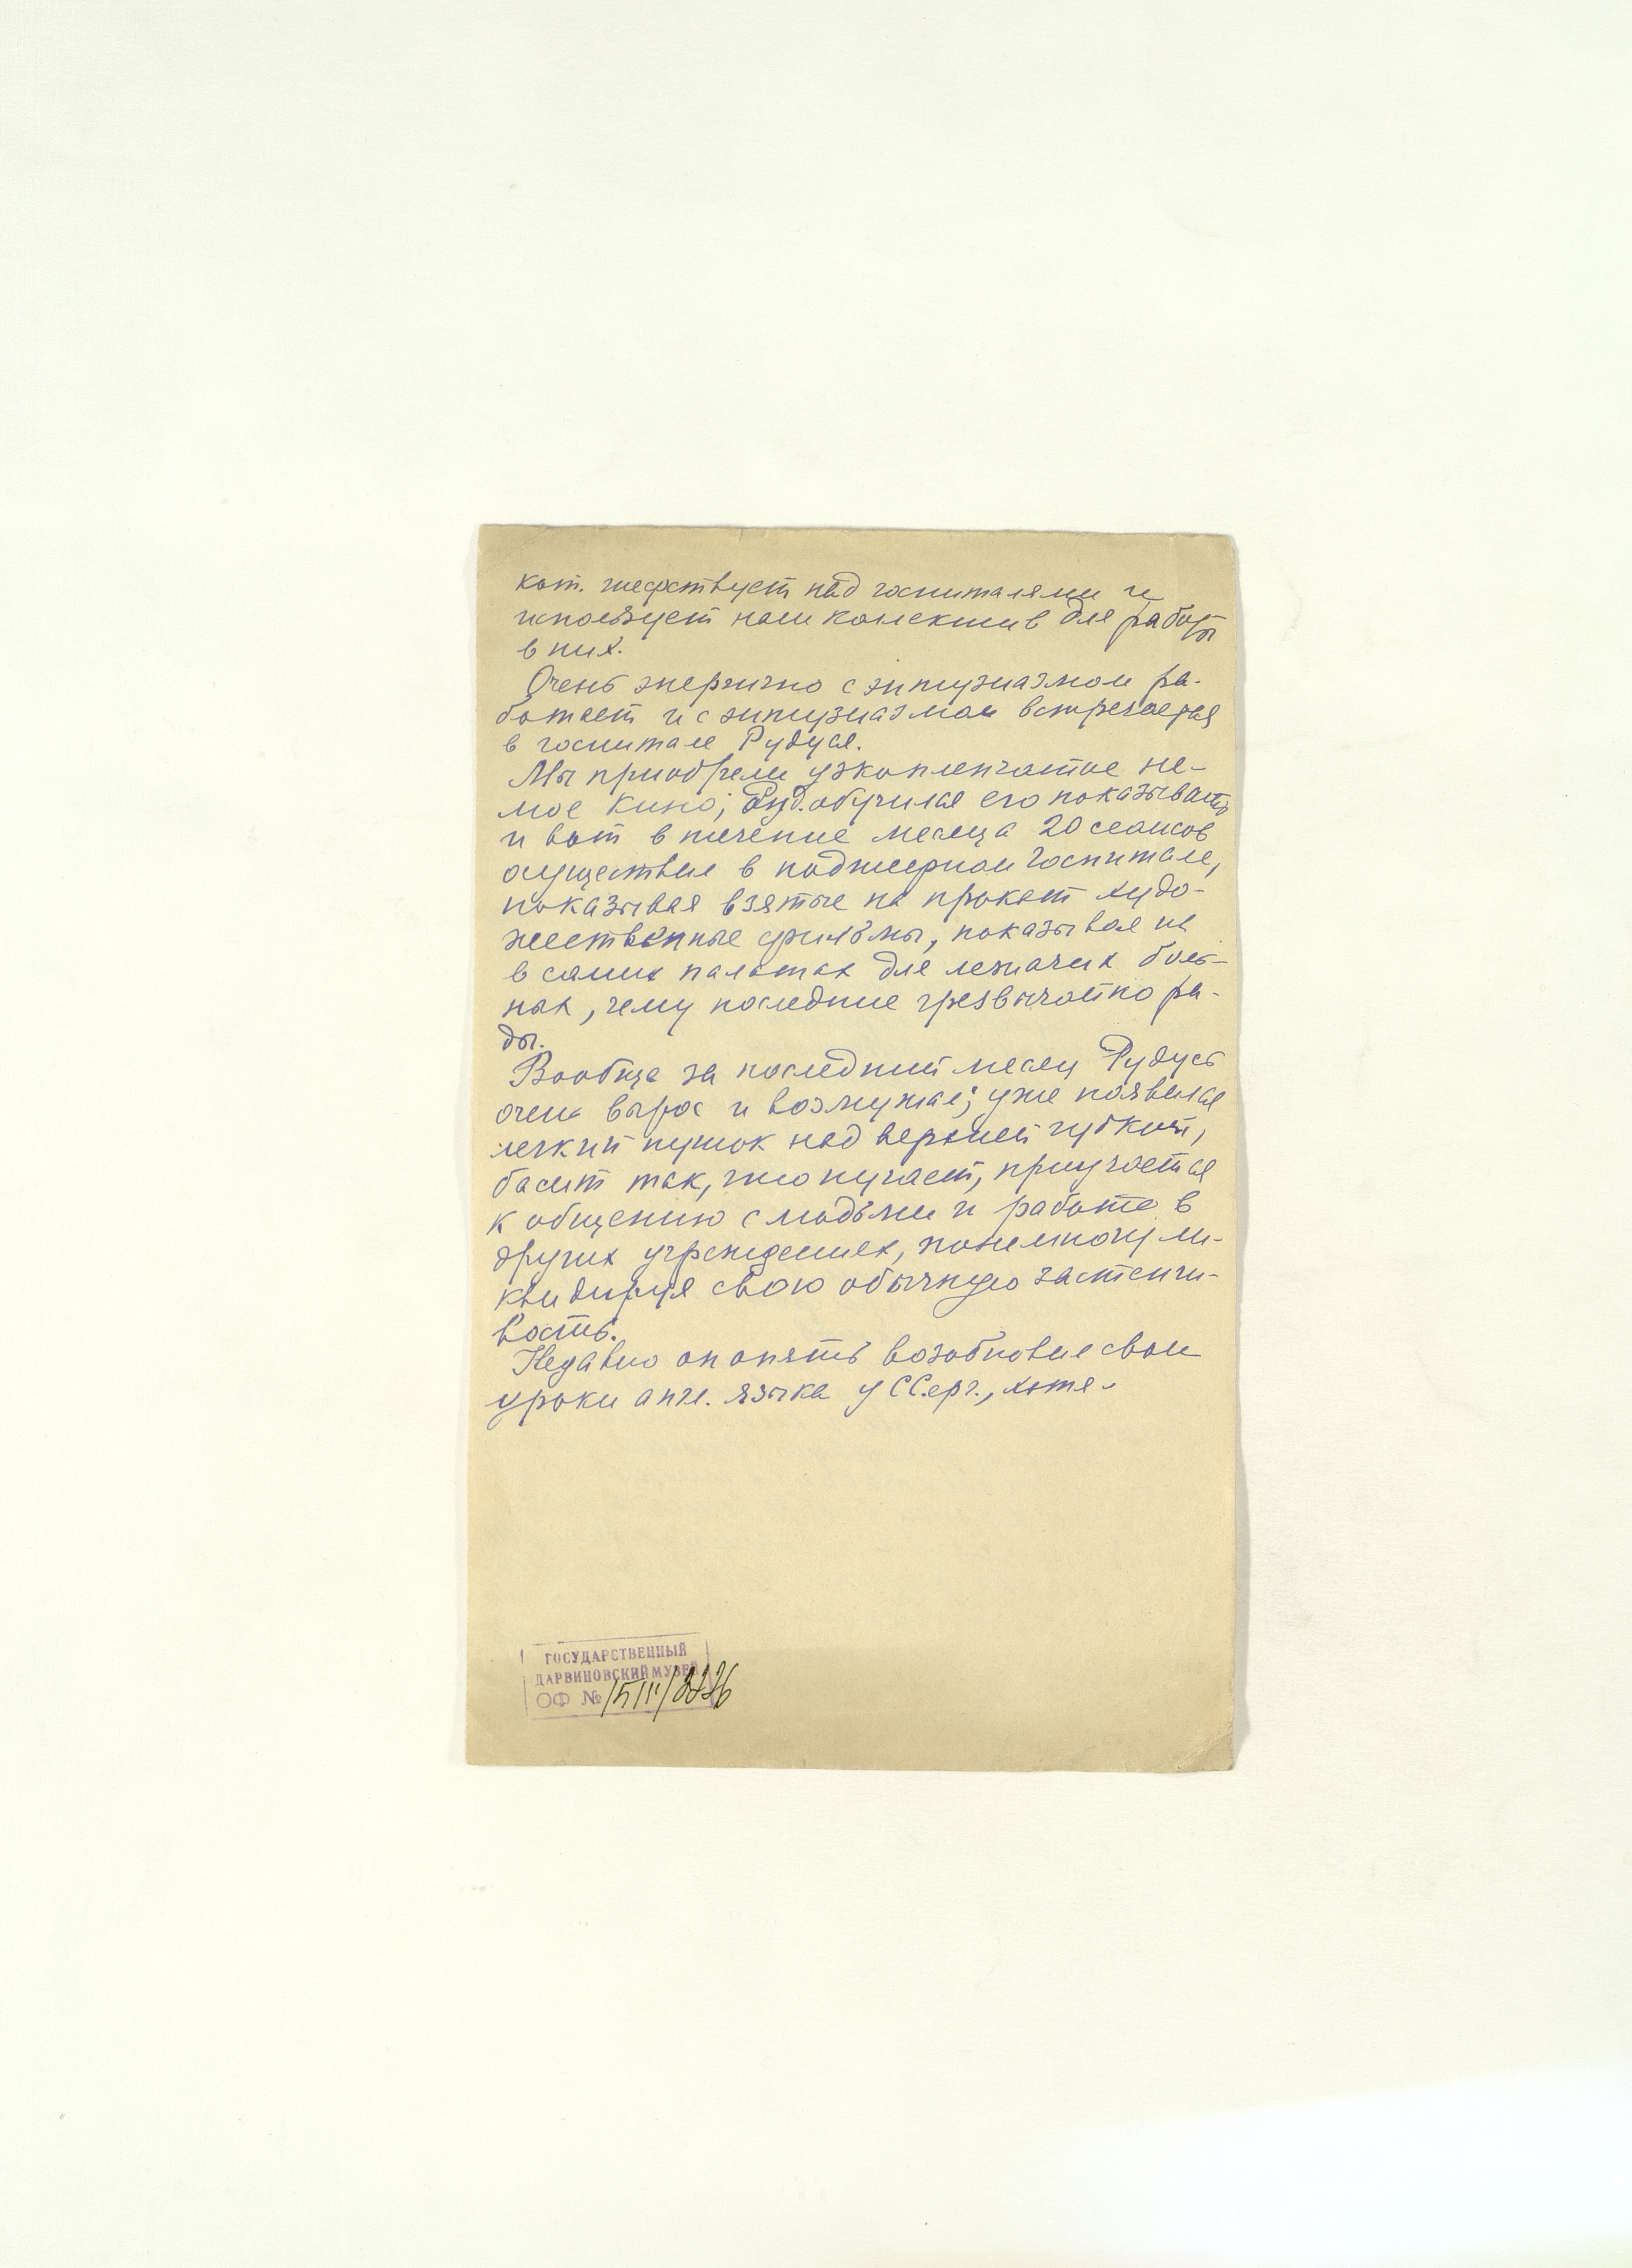 кот. шефствует над госпиталями и
использует наш колектив для работы
в них.
Очень энергично с энтузиазмом ра-
ботает и с энтузиазмом встречается
в госпитале Рудуся.
Мы приобрели узкопленчатое не-
мое кино; Руд. обучился его показывать
и вот в течение месяца 20 сеансов
осуществил в подшефном госпитале,
показывая взятые на прокат худо-
жественные фильмы, показывая их
в самих палатах для лежачих боль-
ных, чему последние чрезвычайно ра-
ды.
Вообще за последний месяц Рудусь
очень вырос и возмужал; уже появился
легкий пушок над верхней губкой,
басит так, что пугает, приучается
к общению с людьми и работе в
других учреждениях, понемногу ли-
квидируя свою обычную застенчи-
вость.
Недавно он опять возобновил свои
уроки англ. языка у С.Серг., хотя
ГОСУДАРСТВЕННЫЙ
ДАРВИНОВСКИЙ МУЗЕЙ
ОФ №